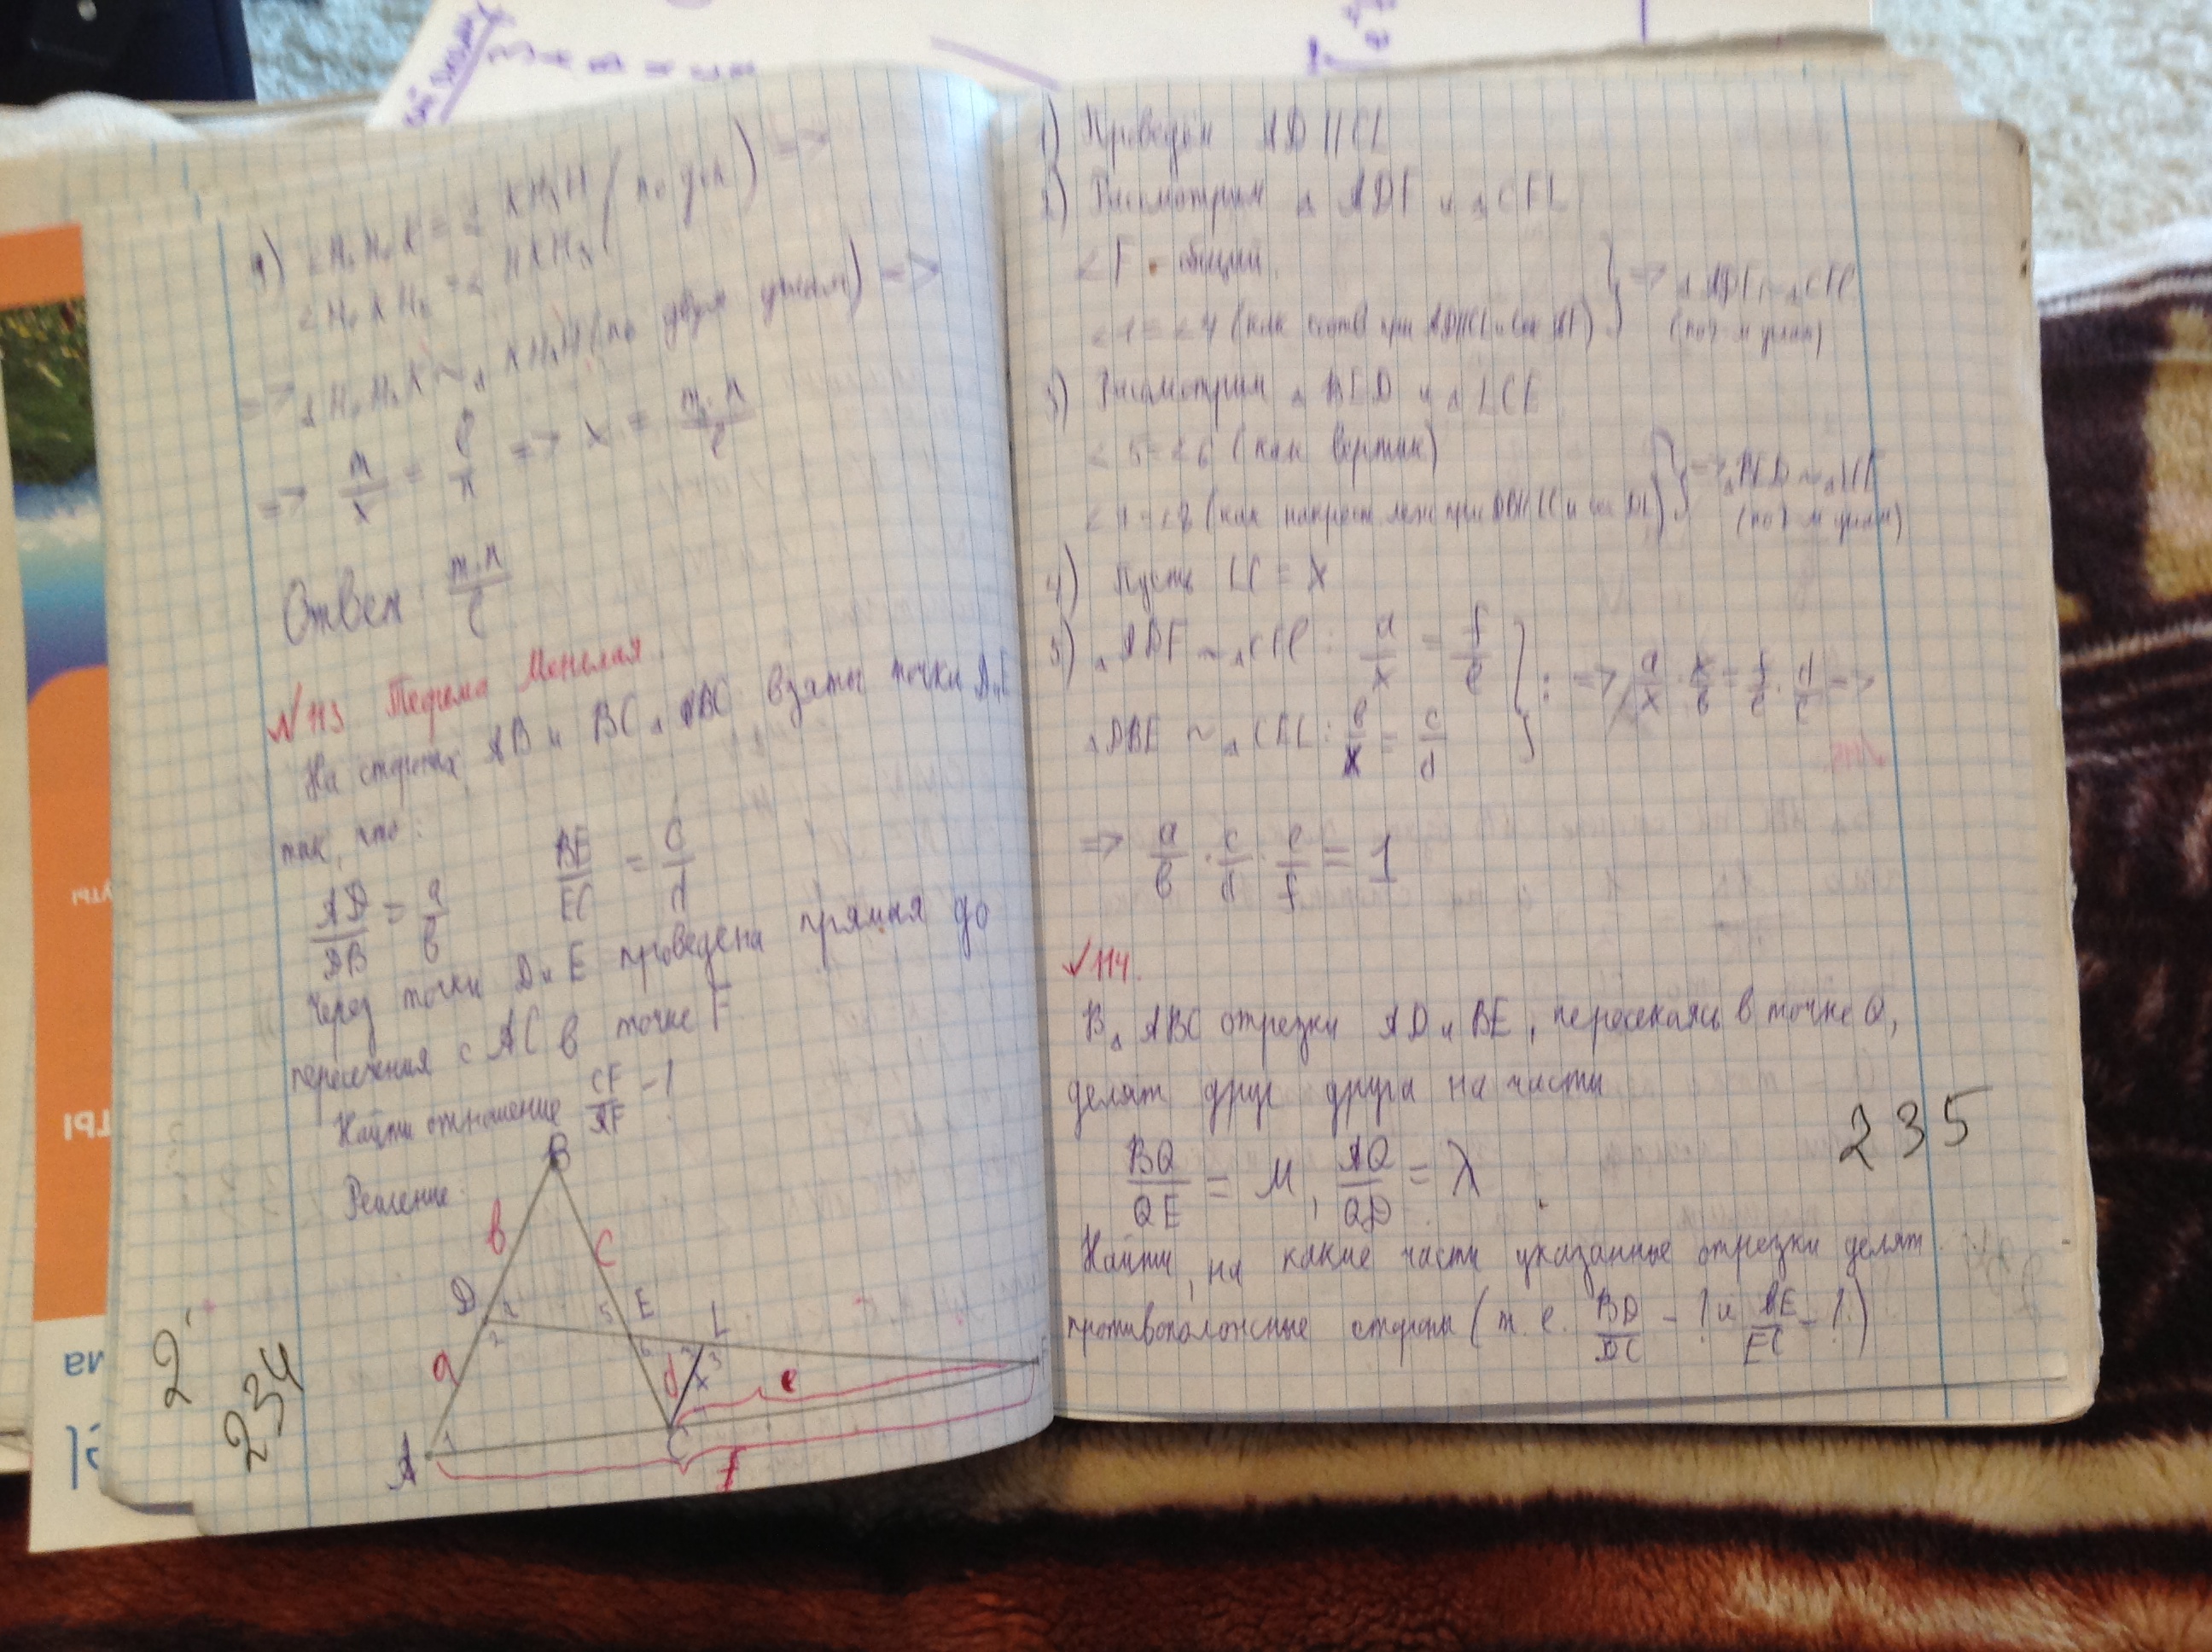 4) ∠H₁H₂X = ∠XH₃H (по док) =>
∠H₁XH₂ = ∠HXH₃
=> △H₁H₂X ~ △XH₃H (по двум углам) =>
=> m/x = l/n => x = m·n/l
Ответ: m·n/l
№113 Теорема Менелая.
На сторонах AB и BC △ABC взяты точки D и E
так, что:
AD/DB = a/b BE/EC = c/d
Через точки D и E проведена прямая до
пересечения с AC в точке F.
Найти отношение CF/AF - ?
Решение:
B
b
c
D
E
L
a
d
x
e
A
C
f
2
234
1) Проведём AD || CL
2) Рассмотрим △ADF и △CFL
∠F - общий.
∠1 = ∠4 (как соотв при AD||CL и сек AF) } => △ADF ~ △CFL
(по 2-м углам)
3) Рассмотрим △BED и △LCE
∠5 = ∠6 (как вертик)
(как накрест леж при DB||LC и сек DL) } => △BED ~ △LCE
(по 2-м углам)
4) Пусть LC = x
5) △ADF ~ △CFL: a/x = f/e
△DBE ~ △CEL: b/x = c/d } : => a/x · x/b = f/e · d/c =>
=> a/b · c/d · e/f = 1
№114.
В △ABC отрезки AD и BE, пересекаясь в точке Q,
делят друг друга на части
BQ/QE = M, AQ/QD = λ
Найти, на какие части указанные отрезки делят
противоположные стороны (т.е. BD/DC - ? и AE/EC - ?)
235